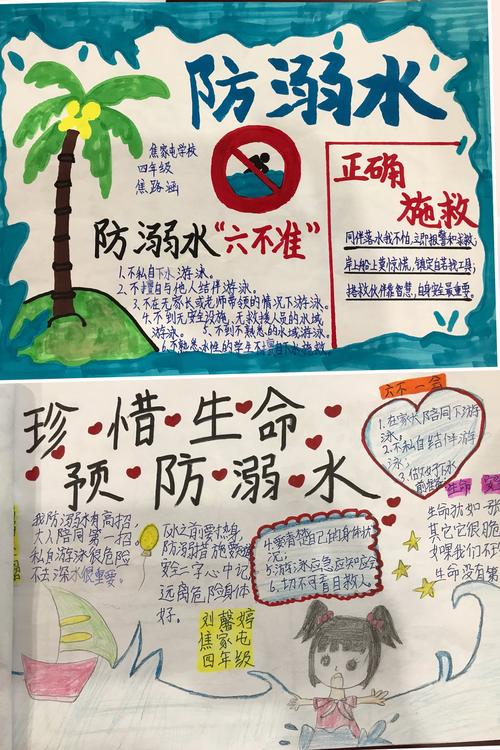 防溺水
焦家屯学校
四年级
焦路涵
防溺水“六不准”
1.不私自下水游泳。
2.不擅自与他人结伴游泳。
3.不在无家长或老师带领的情况下游泳。
4.不到无安全设施、无救援人员的水域
游泳。 5.不到不熟悉的水域游泳。
6.不熟悉水性的学生不擅自下水施救。
正确
施救
同伴落水我不怕,立即报警和求救;
岸上船上莫惊慌,镇定自若找工具;
拯救伙伴靠智慧,自身安全最重要。
珍惜生命
预防溺水
六不一会
1.在家长陪同下游
泳;
2.不私自结伴游
泳;
3.做好下水
前准备
我防溺水有高招,
大人陪同第一招,
私自游泳很危险
不去深水很重要。
下水之前要热身,
防溺措施要跟
安全二字心中记
远离危险身体
好。
4.要看清自己的身体状
况;
5.游泳水应急应知应会
6.切不可盲目救人
生命
生命犹如一那
其它它很脆
如果我们不
生命没有第
刘馨婷
焦家屯
四年级